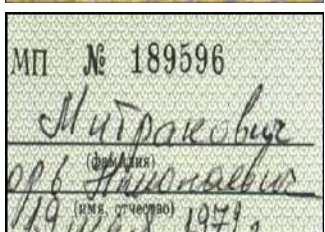 МП № 189596
Митракович
(фамилия)
орь Николаевич
(имя, отчество)
19 мая 1971 г